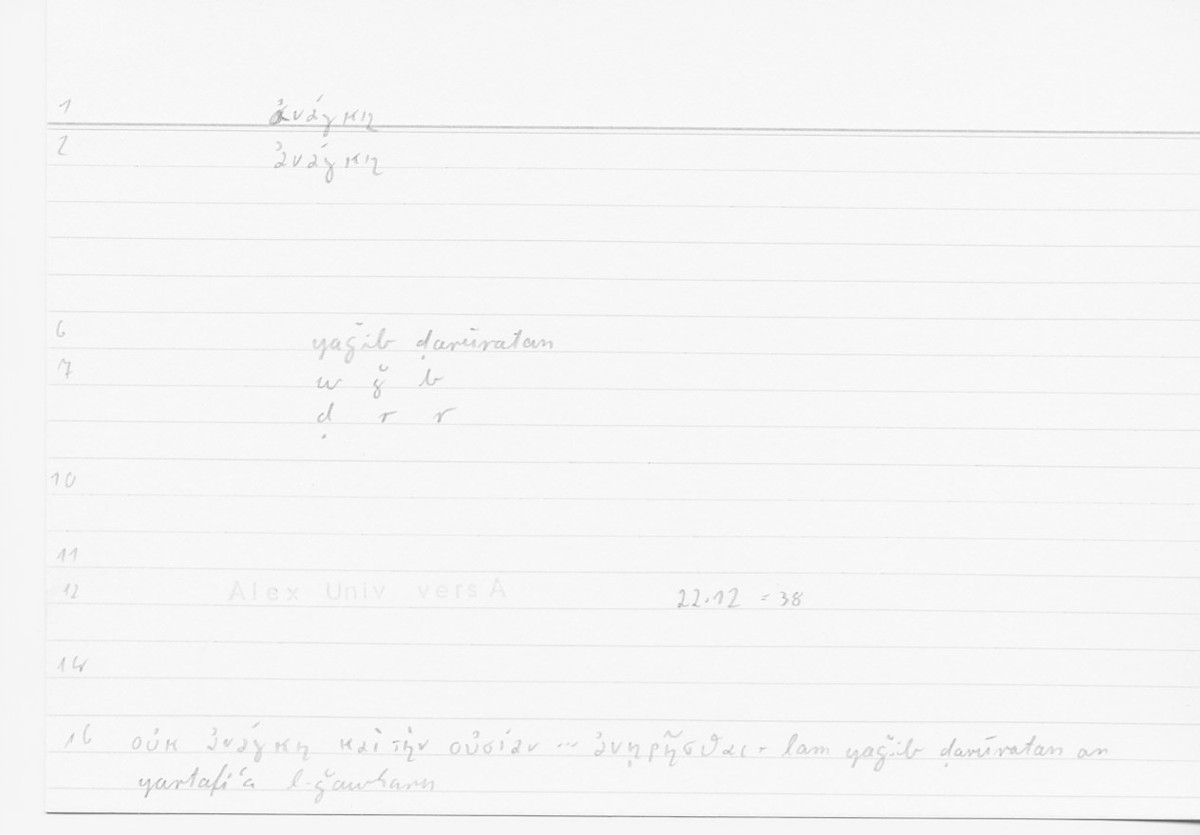 1 ἀνάγκη
2 ἀνάγκη
6 yaǧib ḍarūratan
7 w ǧ b
ḍ r r
10
11
12 Alex Univ vers A 22.12 = 38
14
16 οὐκ ἀνάγκη καὶ τὴν οὐσίαν ... ἀνῃρῆσθαι - lam yaǧib ḍarūratan an
yartafiʿa l-ǧawharu